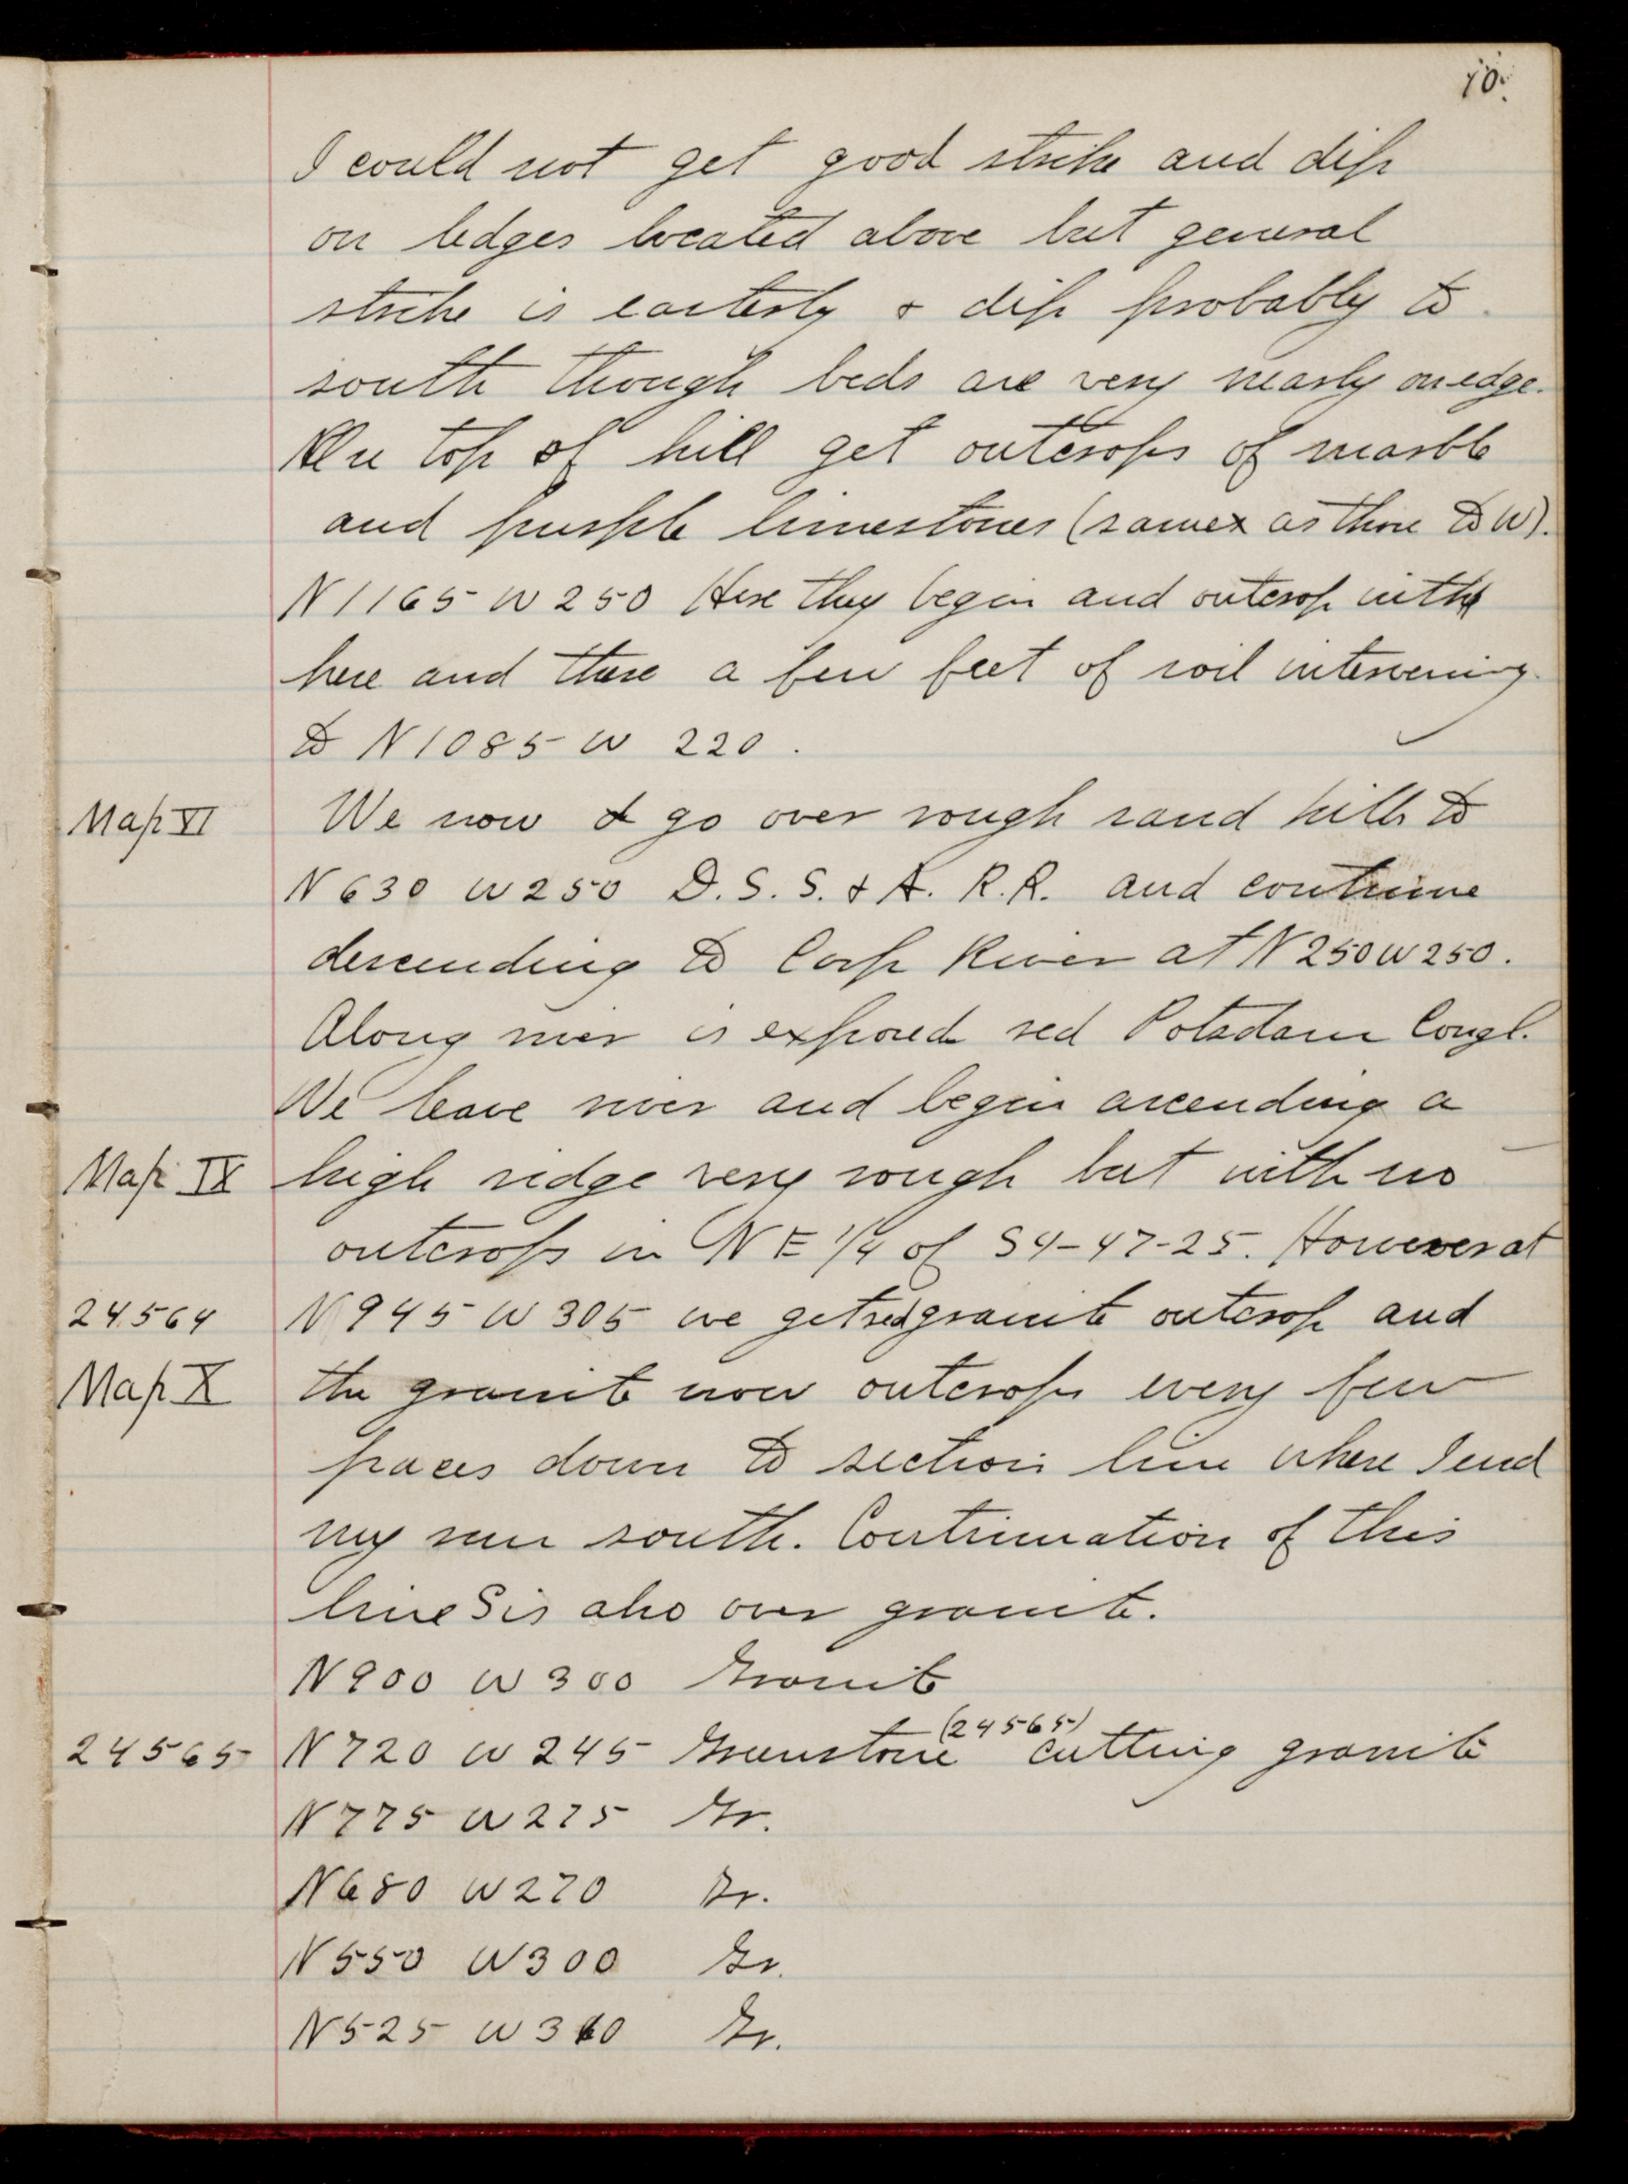 10.
I could not get good strike and dip
on ledges located above but general
strike is easterly & dip probably to
south though beds are very nearly on edge.
On top of hill get outcrops of marble
and purple limestones (same as those to W).
N1165 W250 Here they begin and outcrop with
here and there a few feet of soil intervening
to N1085 W 220.
Map VI We now go over rough sand hills to
N630 W250 D.S.S. & A. R.R. and continue
descending to Carp River at N250 W250.
Along river is exposed red Potsdam Congl.
We leave river and begin ascending a
Map IX high ridge very rough but with no
outcrops in NE 1/4 of S4-47-25. However at
24564 N945 W305 we get red granite outcrop and
Map X the granite now outcrops every few
paces down to section line where I end
my run south. Continuation of this
line S is also over granite.
N900 W300 Granite
24565 N720 W245 Greenstone (24565) cutting granite
N775 W275 Gr.
N680 W270 Gr.
N550 W300 Gr.
N525 W310 Gr.